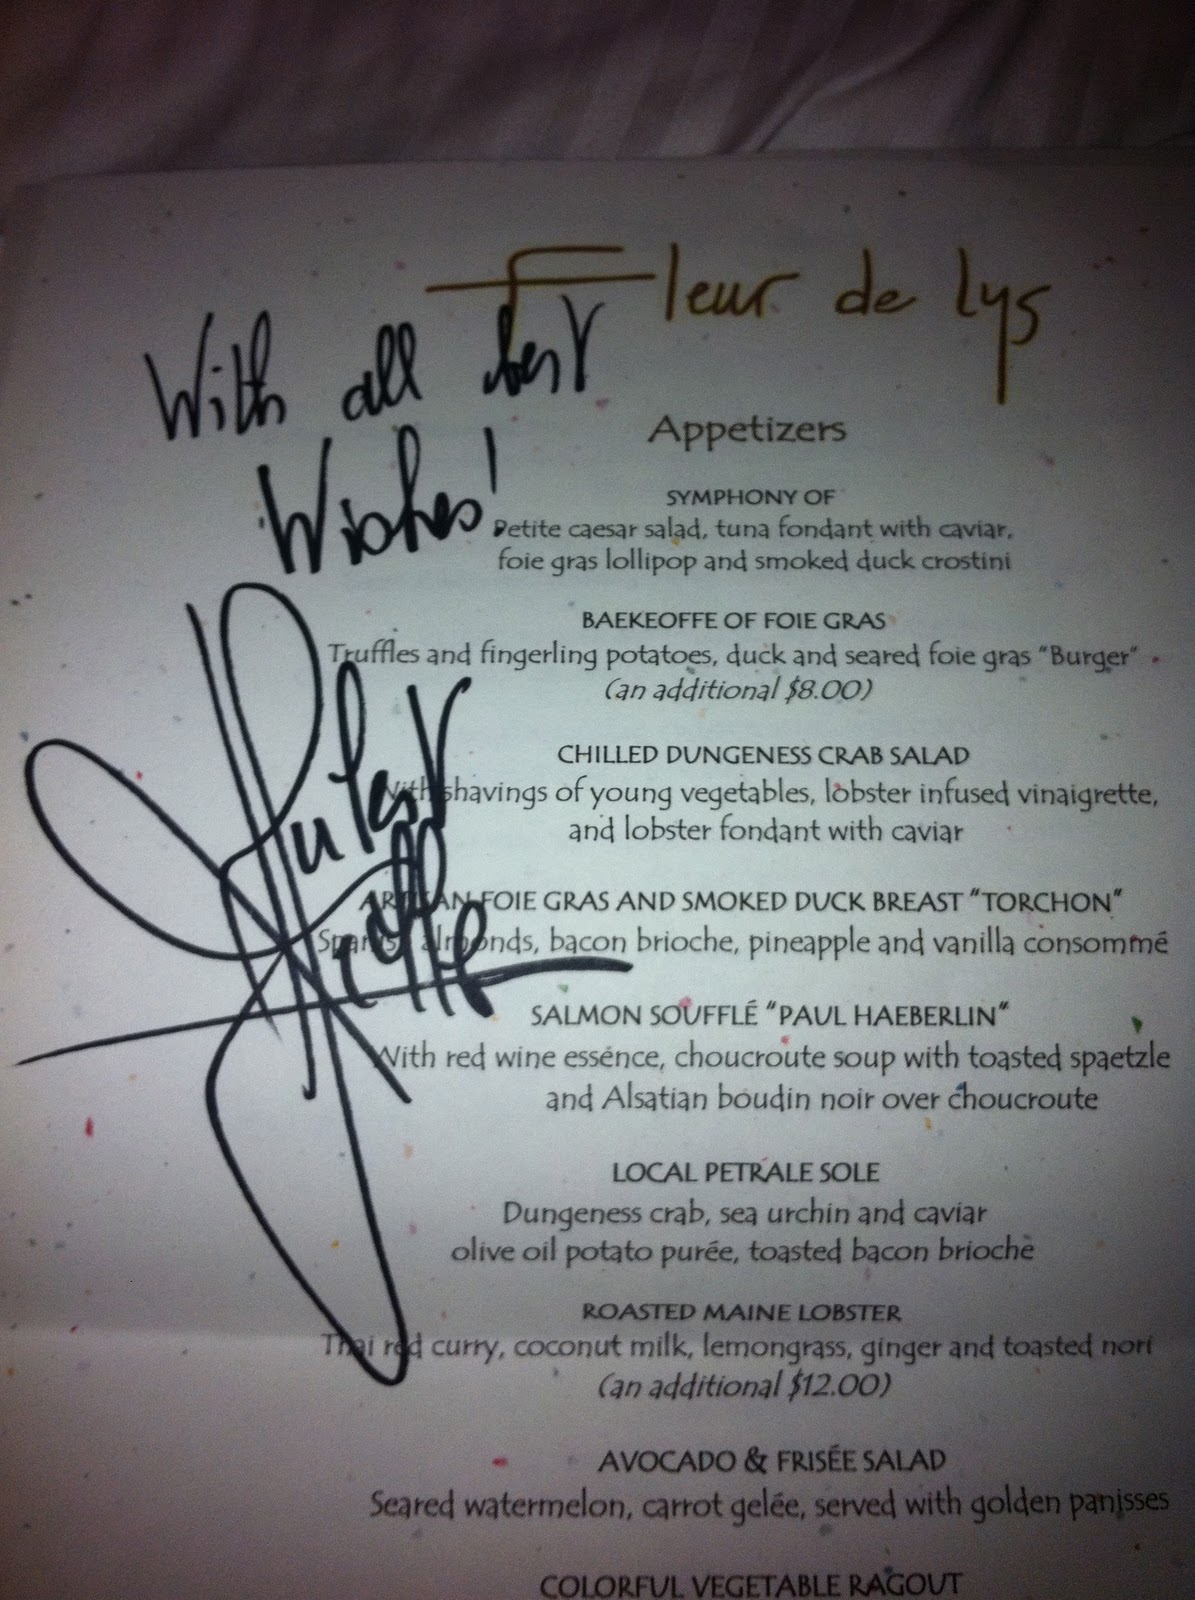 Fleur de Lys
With all best
Wishes!
Hubert
Keller
Appetizers
SYMPHONY OF
Petite caesar salad, tuna fondant with caviar,
foie gras lollipop and smoked duck crostini
BAEKEOFFE OF FOIE GRAS
Truffles and fingerling potatoes, duck and seared foie gras "Burger"
(an additional $8.00)
CHILLED DUNGENESS CRAB SALAD
With shavings of young vegetables, lobster infused vinaigrette,
and lobster fondant with caviar
ARTISAN FOIE GRAS AND SMOKED DUCK BREAST "TORCHON"
Spanish almonds, bacon brioche, pineapple and vanilla consommé
SALMON SOUFFLÉ "PAUL HAEBERLIN"
With red wine essence, choucroute soup with toasted spaetzle
and Alsatian boudin noir over choucroute
LOCAL PETRALE SOLE
Dungeness crab, sea urchin and caviar
olive oil potato purée, toasted bacon brioche
ROASTED MAINE LOBSTER
Thai red curry, coconut milk, lemongrass, ginger and toasted nori
(an additional $12.00)
AVOCADO & FRISÉE SALAD
Seared watermelon, carrot gelée, served with golden panisses
COLORFUL VEGETABLE RAGOUT